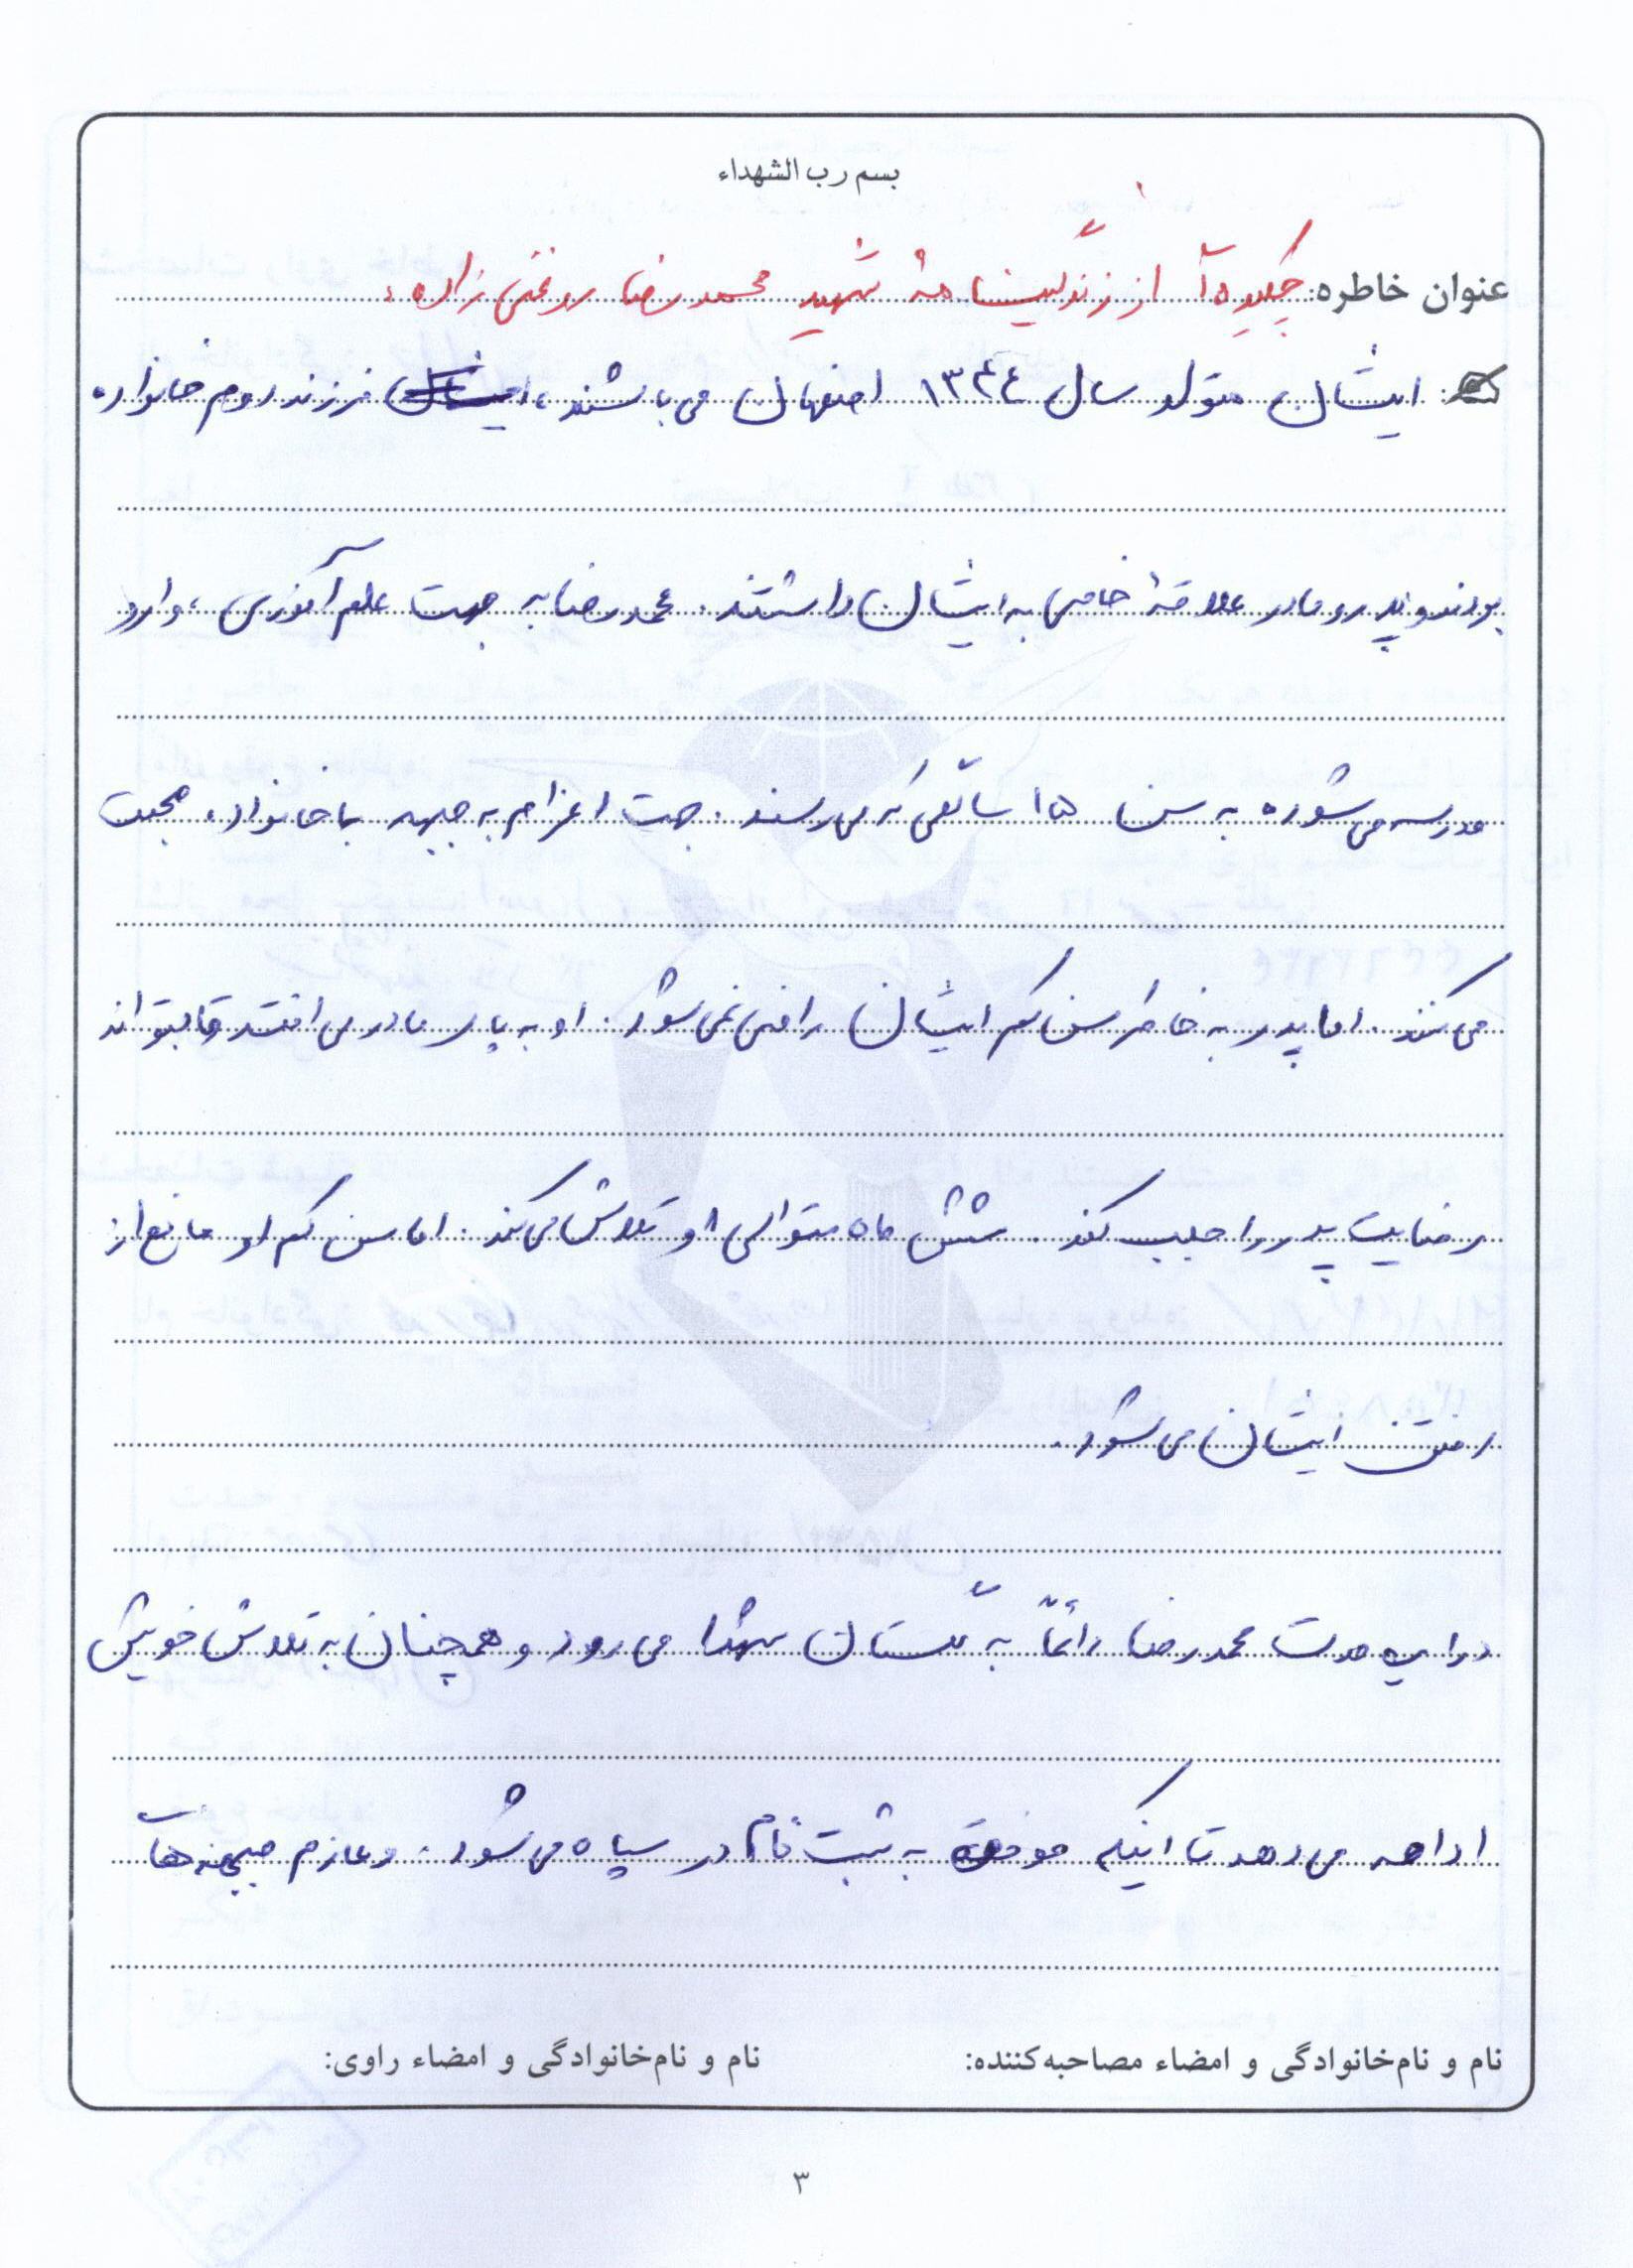 بسم رب الشهداء
عنوان خاطره: چکیده‌آ از زندگینامهٔ شهید محمدرضا روغنی زاده.
ایشان متولد سال ۱۳۴۴ اصفهان می باشند، ایشان فرزند دوم خانواده
بودند و پدر و مادر علاقهٔ خاصی به ایشان داشتند. محمدرضا به جهت علم آموزی، وارد
مدرسه می شود، به سن ۱۵ سالگی که می رسند. جهت اعزام به جبهه با خانواده صحبت
می کنند. اما پدر به خاطر سن کم ایشان راضی نمی شود. او به پای مادر می افتد تا بتواند
رضایت پدر را جلب کند. شش ماه متوالی او تلاش می کند. اما سن کم او مانع از
رفتن ایشان می شود.
در این مدت محمدرضا دائماً به گلستان شهدا می رود و همچنان به تلاش خویش
ادامه می دهد تا اینکه موفق به ثبت نام در سپاه می شود. و عازم جبهه ها
نام و نام‌خانوادگی و امضاء مصاحبه‌کننده: نام و نام‌خانوادگی و امضاء راوی:
۳